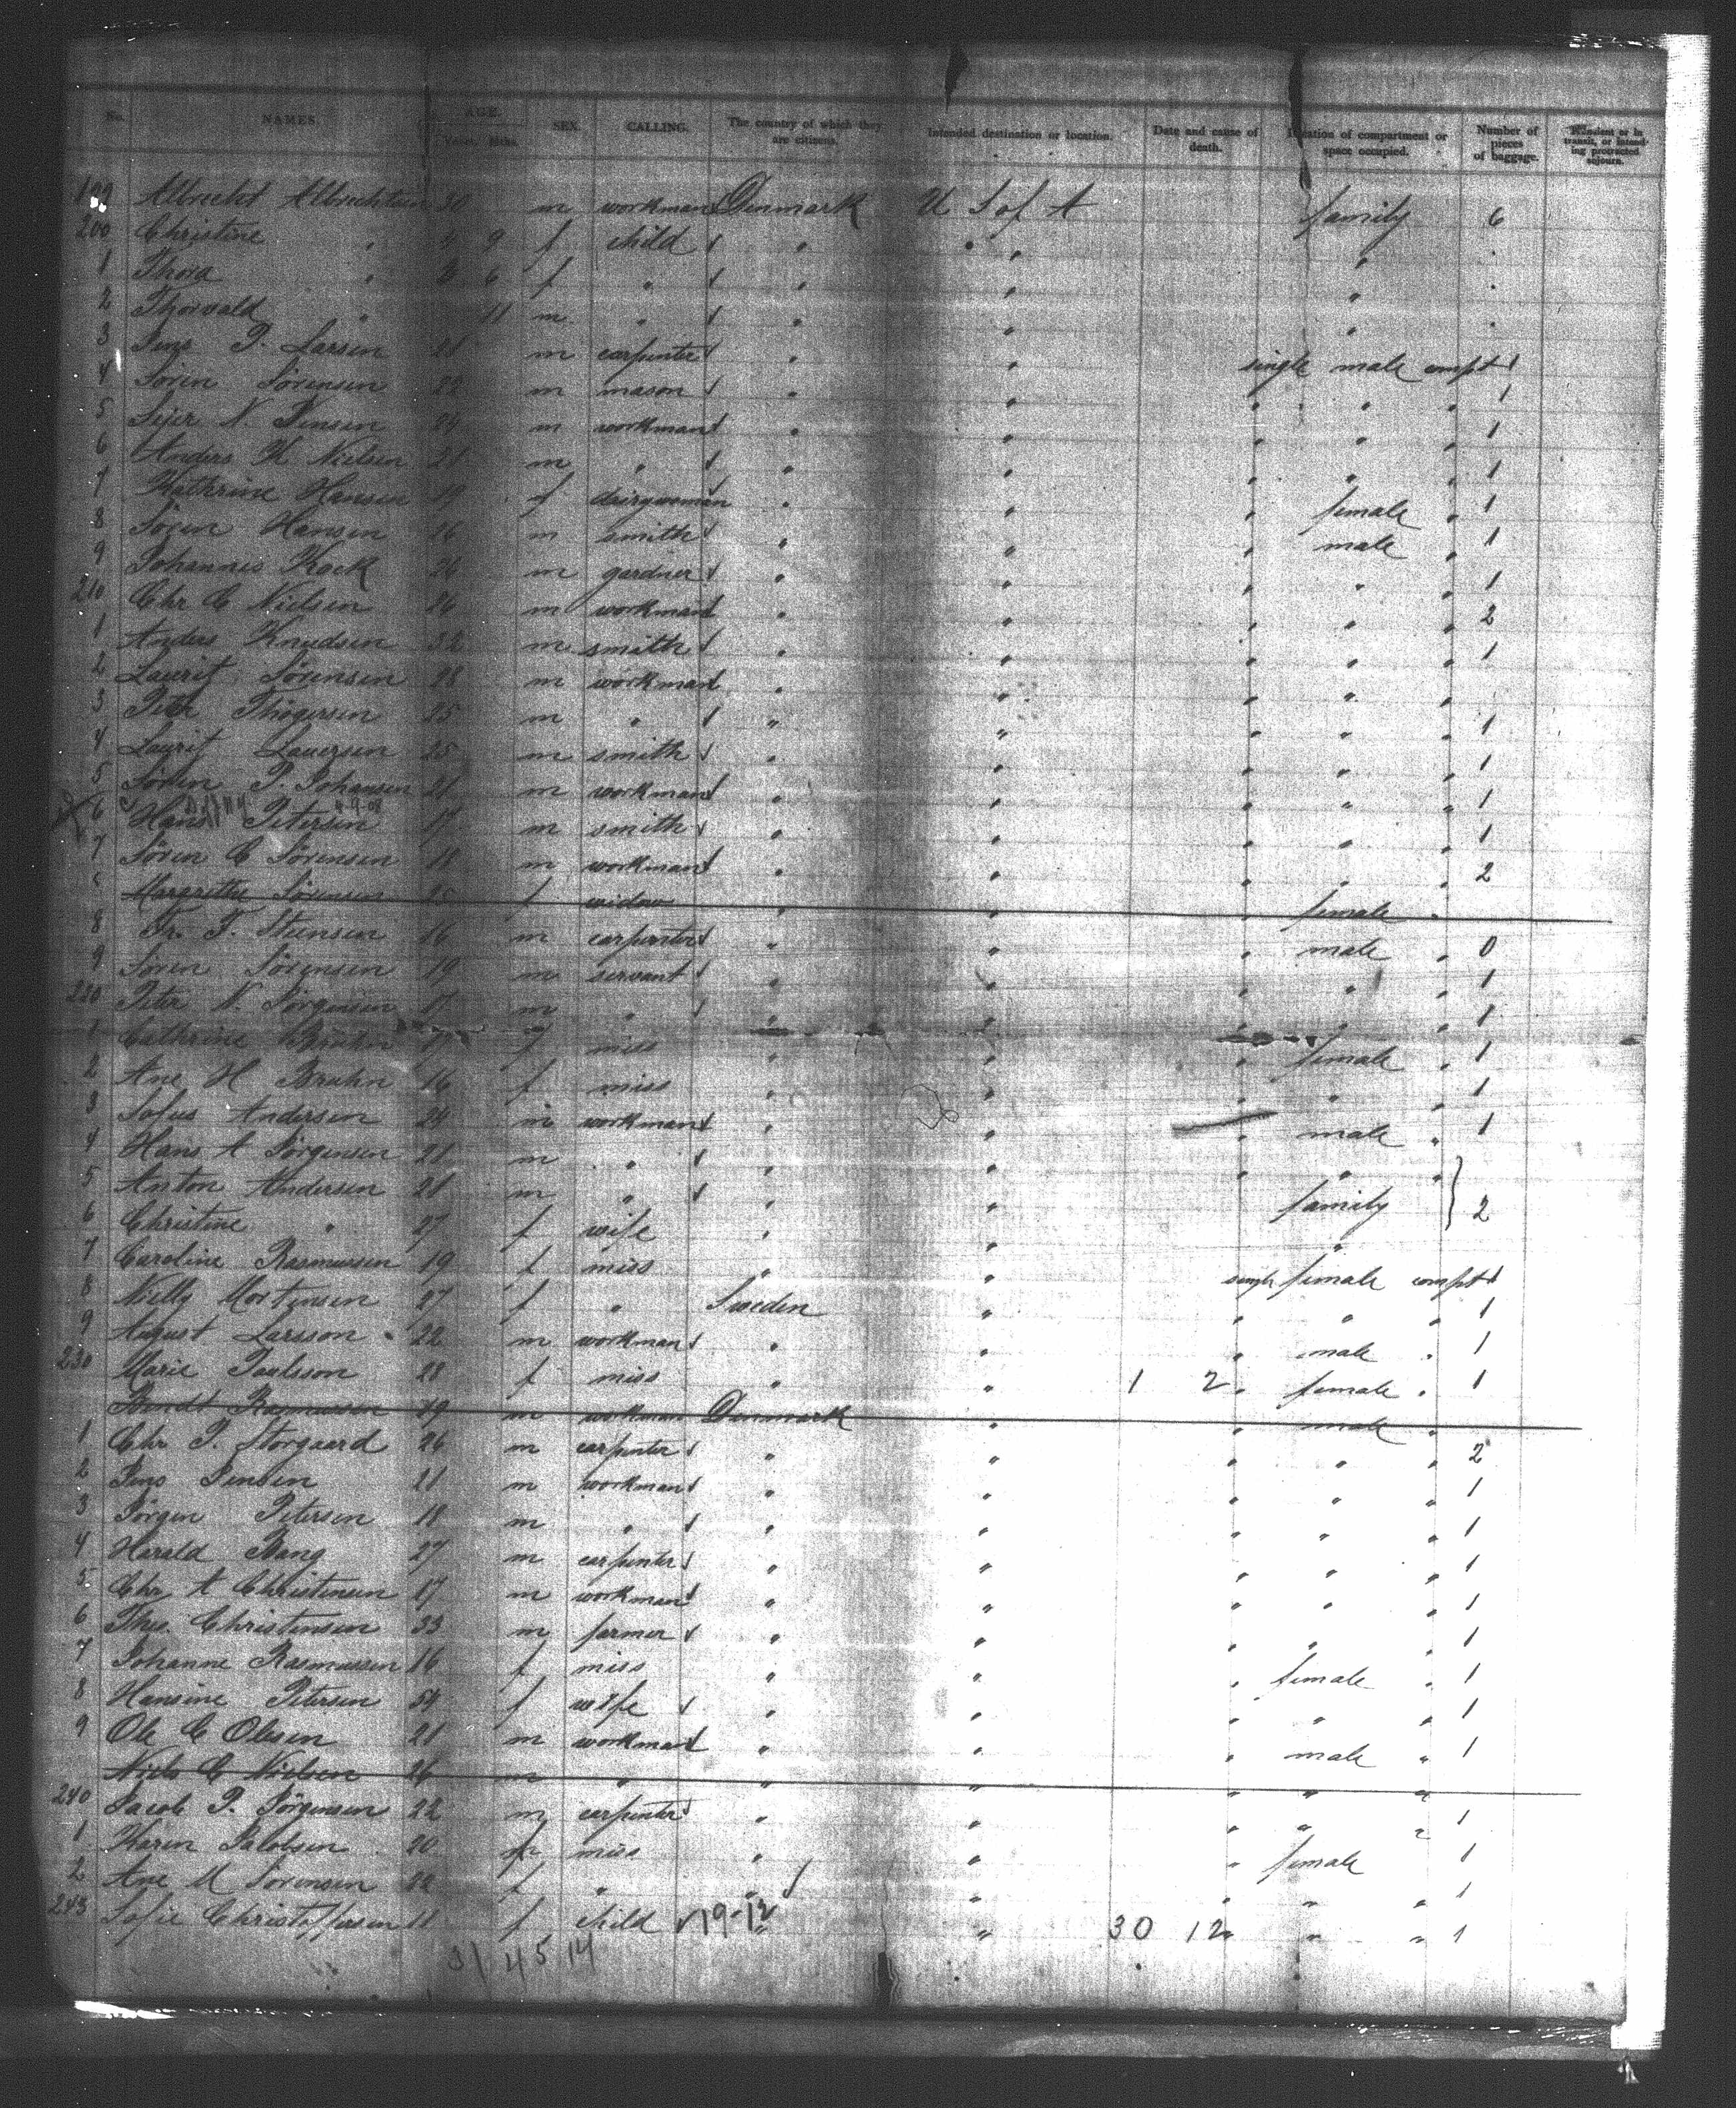 No. NAMES. AGE. Years. Mths. SEX. CALLING. The country of which they are citizens. Intended destination or location. Date and cause of death. Location of compartment or space occupied. Number of pieces of baggage. Transient or in transit, or intending protracted sojourn.
199 Albrecht Albrechtsen 30 m workman Denmark U S of A family 6
200 Christine " 4 9 f child " " "
1 Thora " 2 6 f " " " "
2 Thorvald " 11 m " " " "
3 Jens P. Larsen 28 m carpenter " " single male compt 1
4 Soren Sörensen 22 m mason " " " " " 1
5 Sejer N. Jensen 24 m workman " " " " " 1
6 Anders H Nielsen 21 m " " " " " " 1
7 Kathrine Hansen 19 f dairywoman " " " female " 1
8 Sören Hansen 16 m smith " " " male " 1
9 Johannes Kock 26 m gardner " " " " " 1
210 Chr C Nielsen 26 m workman " " " " " 2
1 Anders Knudsen 32 m smith " " " " " 1
2 Laurit Sörensen 28 m workman " " " " "
3 Peter Thögersen 25 m " " " " " " 1
4 Laurit Lauersen 25 m smith " " " " " 1
5 Sören P. Johansen 21 m workman " " " " " 1
6 Hans Petersen 17 m smith " " " " " 1
7 Sören C Sörensen 18 m workman " " " " " 2
Margrethe Sörensen f widow " " " female "
8 Fr. F. Steensen 26 m carpenter " " " male " 0
9 Sören Sörensen 19 m servant " " " " " 1
220 Peter N. Jörgensen 17 m " " " " " " 1
1 Cathrine Bruhn f miss " " " female " 1
2 Ane H Bruhn 16 f miss " " " " " 1
3 Sofus Andersen 24 m workman " " " male " 1
4 Hans A Jörgensen 21 m " " " " " "
5 Anton Andersen 28 m " " " family 2
6 Christine " 27 f wife " " "
7 Caroline Rasmussen 19 f miss " " single female compt 1
8 Nielly Mortensen 27 f " Sweden " " " " 1
9 August Larsson 22 m workman " " " male " 1
230 Marie Paulsson 28 f miss " " 1 2 " female " 1
Bendt Rasmussen 19 m workman Denmark " " male "
1 Chr P. Storgaard 26 m carpenter " " " " " 2
2 Jens Jensen 21 m workman " " " " " 1
3 Jörgen Petersen 18 m " " " " " " 1
4 Harald Bang 27 m carpenter " " " " " 1
5 Chr A Christensen 17 m workman " " " " " 1
6 Thos. Christensen 33 m farmer " " " " " 1
7 Johanne Rasmussen 16 f miss " " " female " 1
8 Hansine Petersen 54 f wife " " " " " 1
9 Ole C Olesen 21 m workman " " " male " 1
Niels C Nielsen 26 m " " " " " "
240 Jacob P. Jörgensen 22 m carpenter " " " " " 1
1 Karen Jacobsen 20 f miss " " " female 1
2 Ane M Sorensen 22 f " " " " " " 1
243 Sofie Christoffersen 11 f child 19-12 " " 30 12 " " " 1
31 45 14